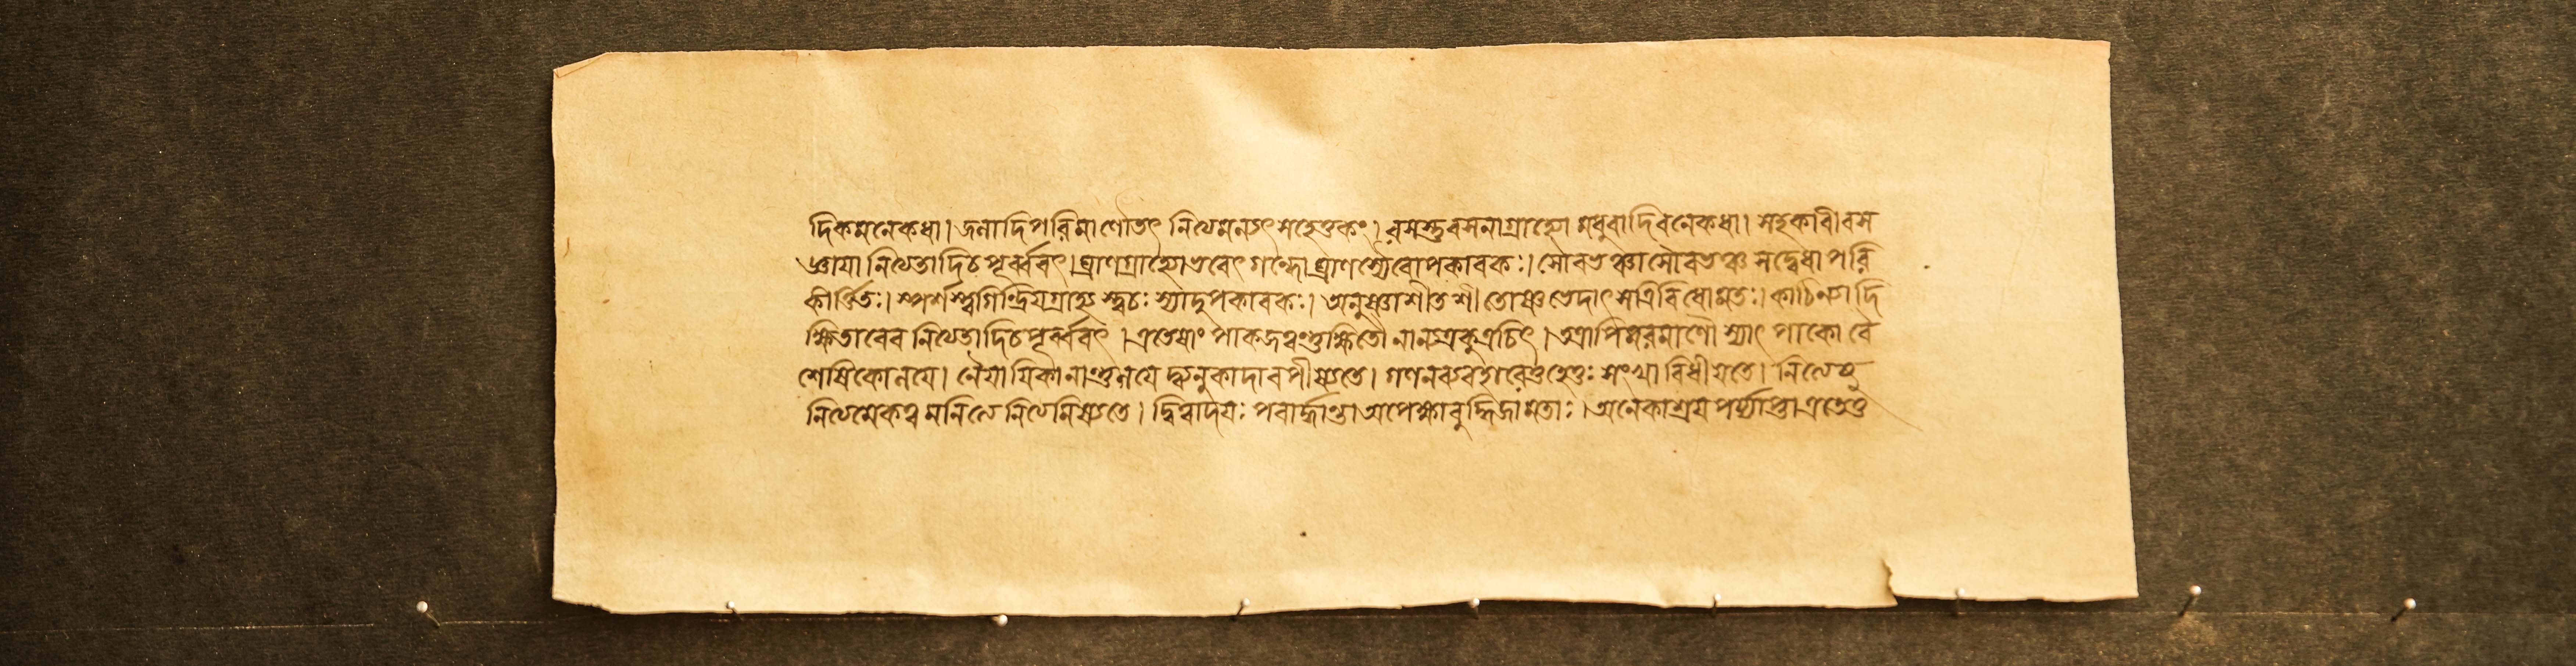 দিকমনেকধা। জলাদিপরিমাণৌতৎ নিত্যমন্যৎ সহেতুকং। রসস্তুরসনাগ্রাহ্যো মধুরাদিরনেকধা। সহকারীরস
জ্ঞায়া নিত্যতাদিচপূর্ব্ববৎ। ঘ্রাণগ্রাহ্যোভবেৎ গন্ধো ঘ্রাণস্যৈবোপকারকঃ। সৌরভঞ্চাসৌরভঞ্চ সদ্বেধা পরি
কীর্ত্তিতঃ। স্পর্শস্ত্বগিন্দ্রিয়গ্রাহ্য স্ত্বচঃ স্যাদুপকারকঃ। অনুষ্ণাশীতশীতোষ্ণভেদাৎ সত্রিবিধোমতঃ। কাঠিন্যাদি
ক্ষিতাবেব নিত্যতাদিচপূর্ব্ববৎ। এতেষাং পাকজত্বংতুক্ষিতৌ নান্যত্রকুত্রচিৎ। তত্রাপিপরমাণৌ স্যাৎ পাকো বৈ
শেষিকোনয়ে। নৈয়ায়িকানান্তুনয়ে দ্ব্যনুকাদাবপীষ্যতে। গণনব্যবহারেতুহেতুঃ সংখ্যাবিধীয়তে। নিত্যেষু
নিত্যমেকত্বমনিত্যে নিত্যমিষ্যতে। দ্বিত্বাদয়ঃ পরার্দ্ধান্তা অপেক্ষাবুদ্ধিজামতাঃ। অনেকাশ্রয়পর্য্যাপ্তা এতেতু